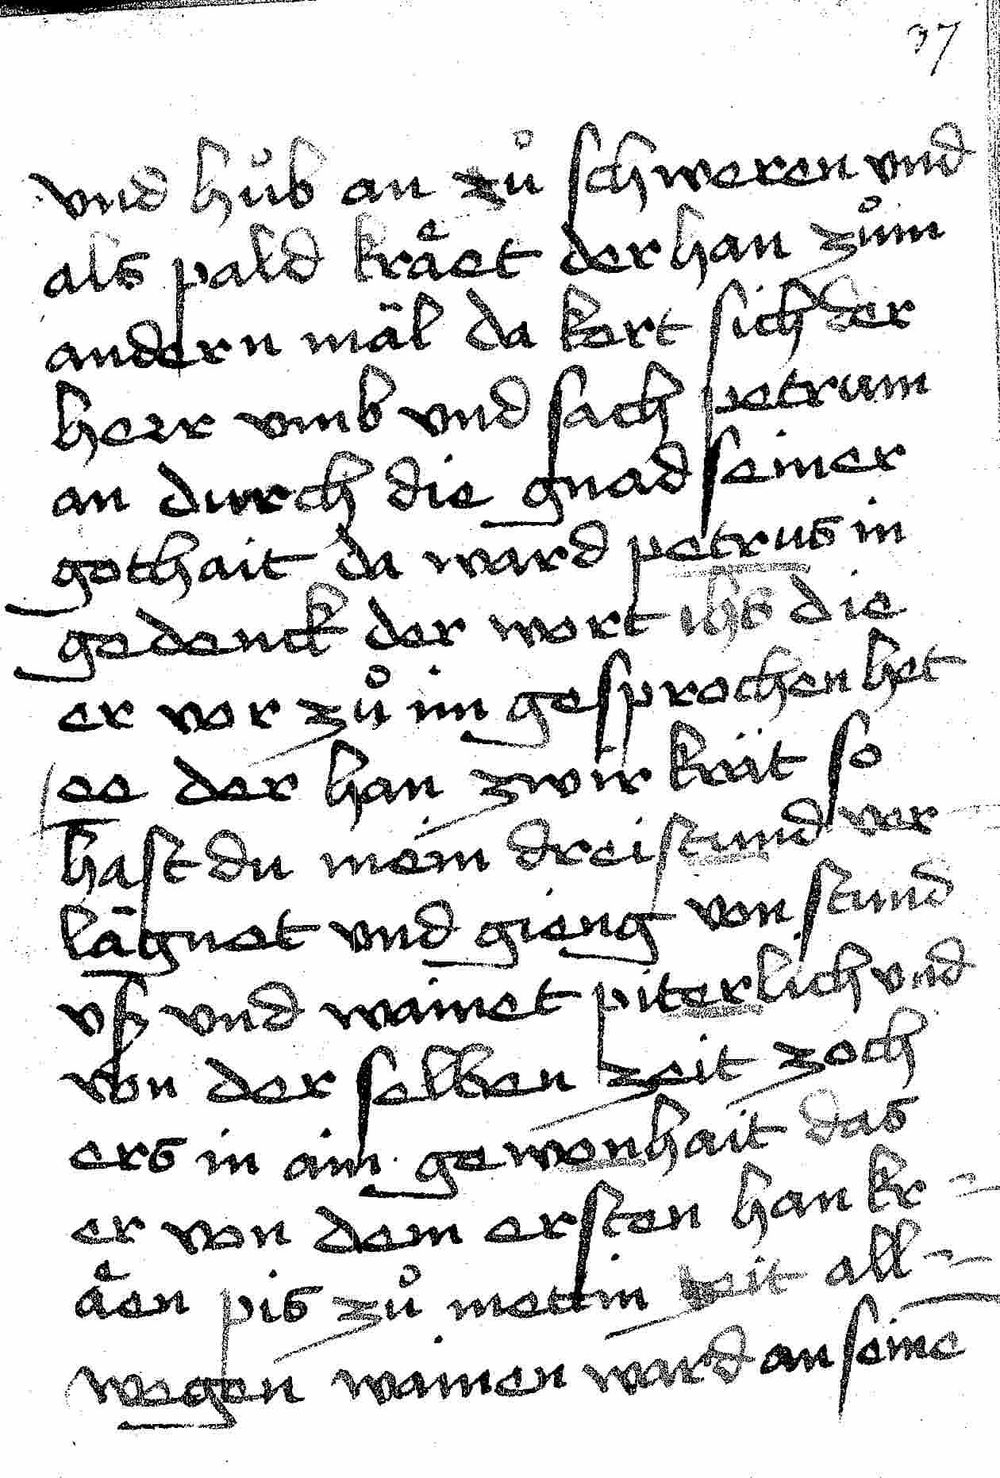 37
vnd hůb an zů schweren vnd
als pald krået der han zům
andern mäl da kert sich der
herr vmb vnd sach petrum
an durch die gnad seiner
gothait da ward petrus in
gedenck der wort ihs die
er vor zů im gesprochen het
ee der han zwir krät so
hast du mein dreistund ver
lägnet vnd gieng von stund
vß vnd wainet piterlich vnd
von der selben zeit zoch
ers in ain gewonhait das
er von dem ersten han kr=
aͤen pis zů mettin zeit all=
wegen wainen ward an seine